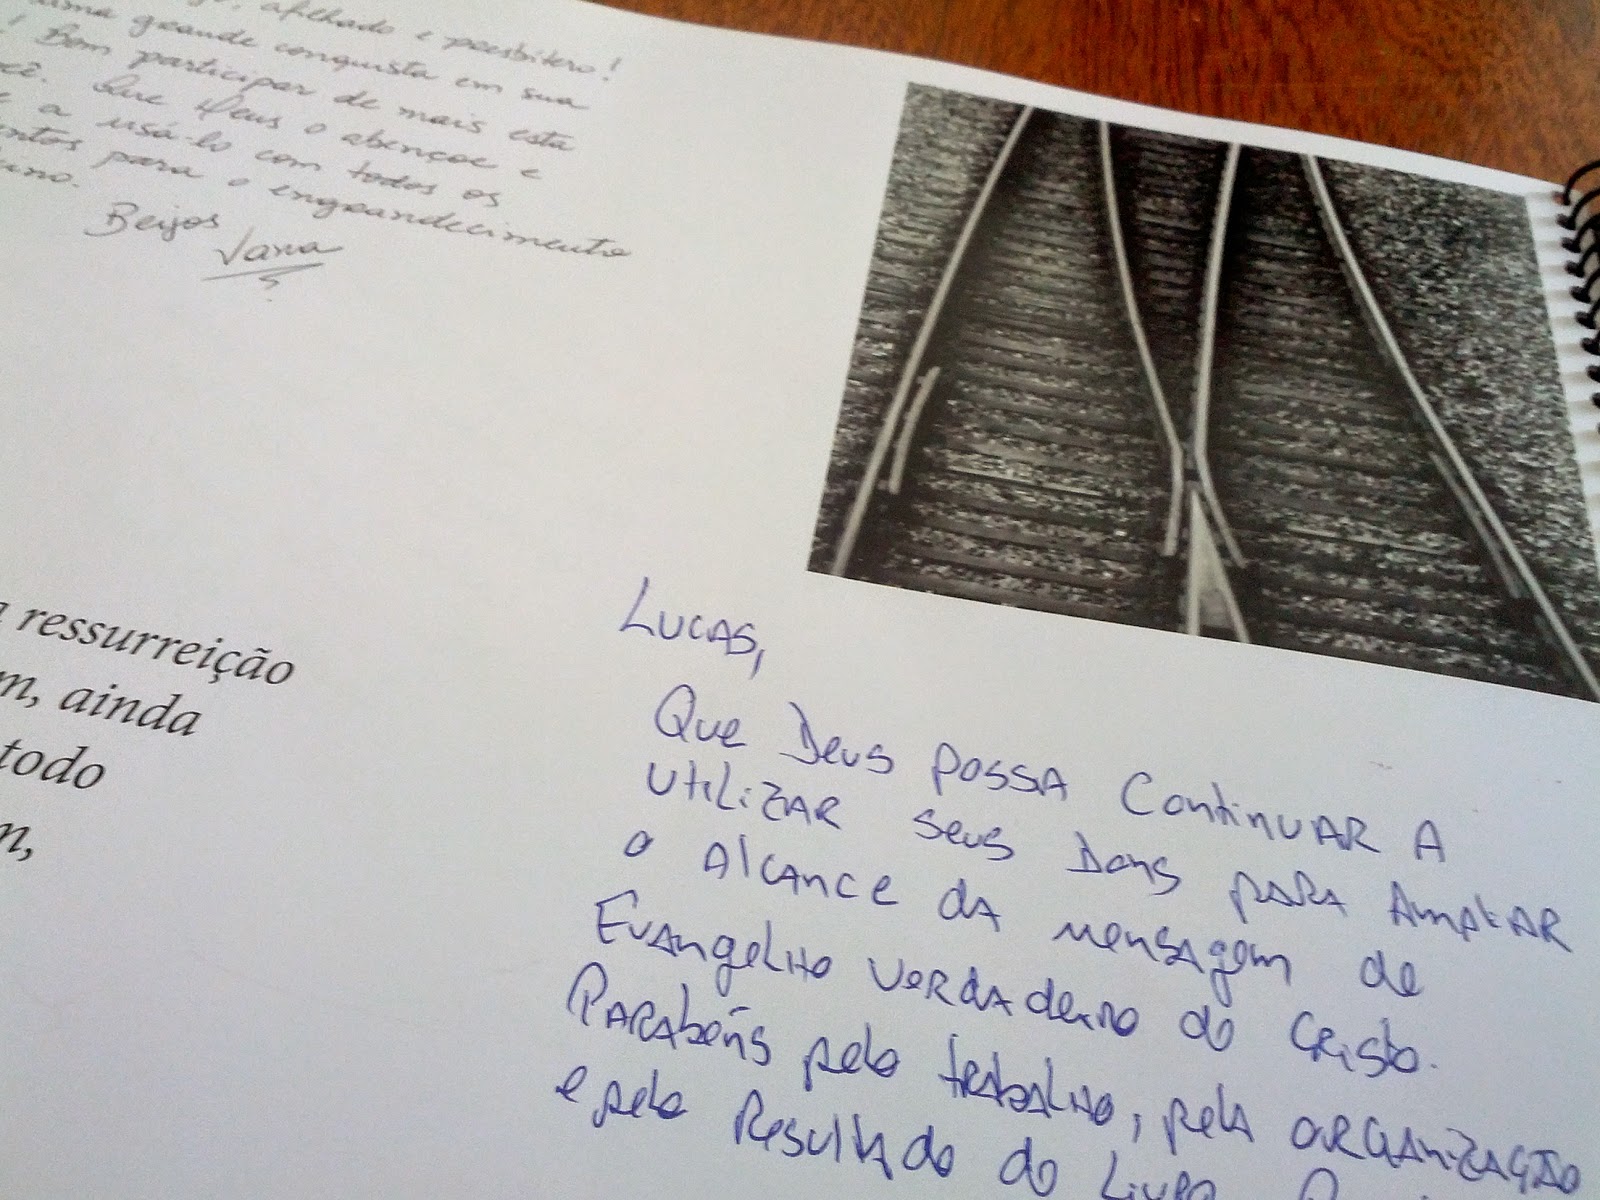 afilhado e presbítero!
uma grande conquista em sua
! Bom participar de mais esta
Que Deus o abençoe e
a usá-lo com todos os
para o engrandecimento
Beijos
ressurreição
m, ainda
todo
n,
Lucas,
Que Deus possa continuar a
utilizar seus dons para ampliar
o alcance da mensagem de
Evangelho verdadeiro do Cristo.
Parabéns pelo trabalho, pela organização
e pelo resultado do livro.